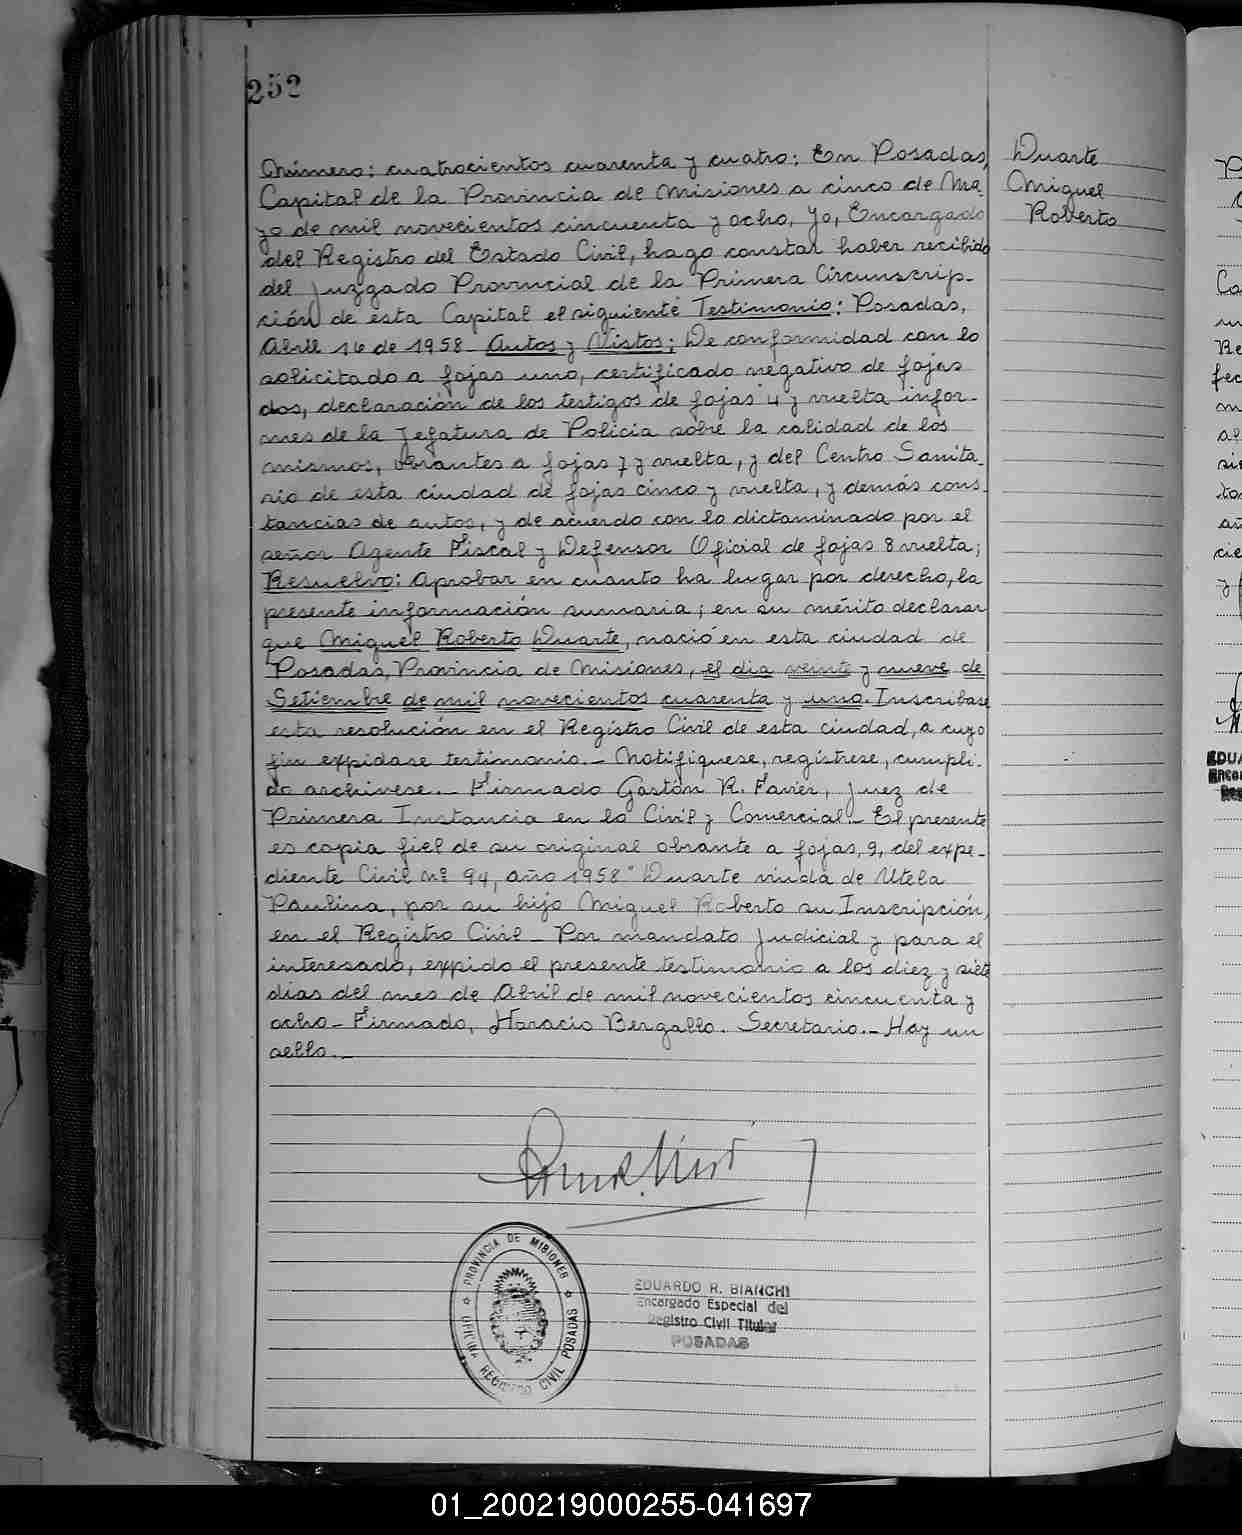 252
Duarte
Miguel
Roberto
Número: cuatrocientos cuarenta y cuatro: En Posadas,
Capital de la Provincia de Misiones a cinco de Ma-
yo de mil novecientos cincuenta y ocho, Yo, Encargado
del Registro del Estado Civil, hago constar haber recibido
del Juzgado Provincial de la Primera Circunscrip-
ción de esta Capital el siguiente Testimonio: Posadas,
Abril 16 de 1958 Autos y Vistos; De conformidad con lo
solicitado a fojas uno, certificado negativo de fojas
dos, declaración de los testigos de fojas 4 y vuelta infor-
mes de la Jefatura de Policía sobre la calidad de los
mismos, obrantes a fojas 7 y vuelta, y del Centro Sanita-
rio de esta ciudad de fojas cinco y vuelta, y demás cons-
tancias de autos, y de acuerdo con lo dictaminado por el
señor Agente Fiscal y Defensor Oficial de fojas 8 vuelta;
Resuelvo: Aprobar en cuanto ha lugar por derecho, la
presente información sumaria; en su mérito declarar
que Miguel Roberto Duarte, nació en esta ciudad de
Posadas, Provincia de Misiones, el día veinte y nueve de
Setiembre de mil novecientos cuarenta y uno. Inscríbase
esta resolución en el Registro Civil de esta ciudad, a cuyo
fin expídase testimonio.- Notifíquese, regístrese, cumpli-
do archívese.- Firmado Gastón R. Favier, Juez de
Primera Instancia en lo Civil y Comercial.- El presente
es copia fiel de su original obrante a fojas, 9, del expe-
diente Civil nº 94, año 1958 "Duarte viuda de Utela
Paulina, por su hijo Miguel Roberto su Inscripción,
en el Registro Civil - Por mandato Judicial y para el
interesado, expido el presente testimonio a los diez y siete
días del mes de Abril de mil novecientos cincuenta y
ocho - Firmado, Horacio Bergallo. Secretario.- Hay un
sello.-
PROVINCIA DE MISIONES
OFICINA REGISTRO CIVIL POSADAS
EDUARDO R. BIANCHI
Encargado Especial del
Registro Civil Titular
POSADAS
01_200219000255-041697